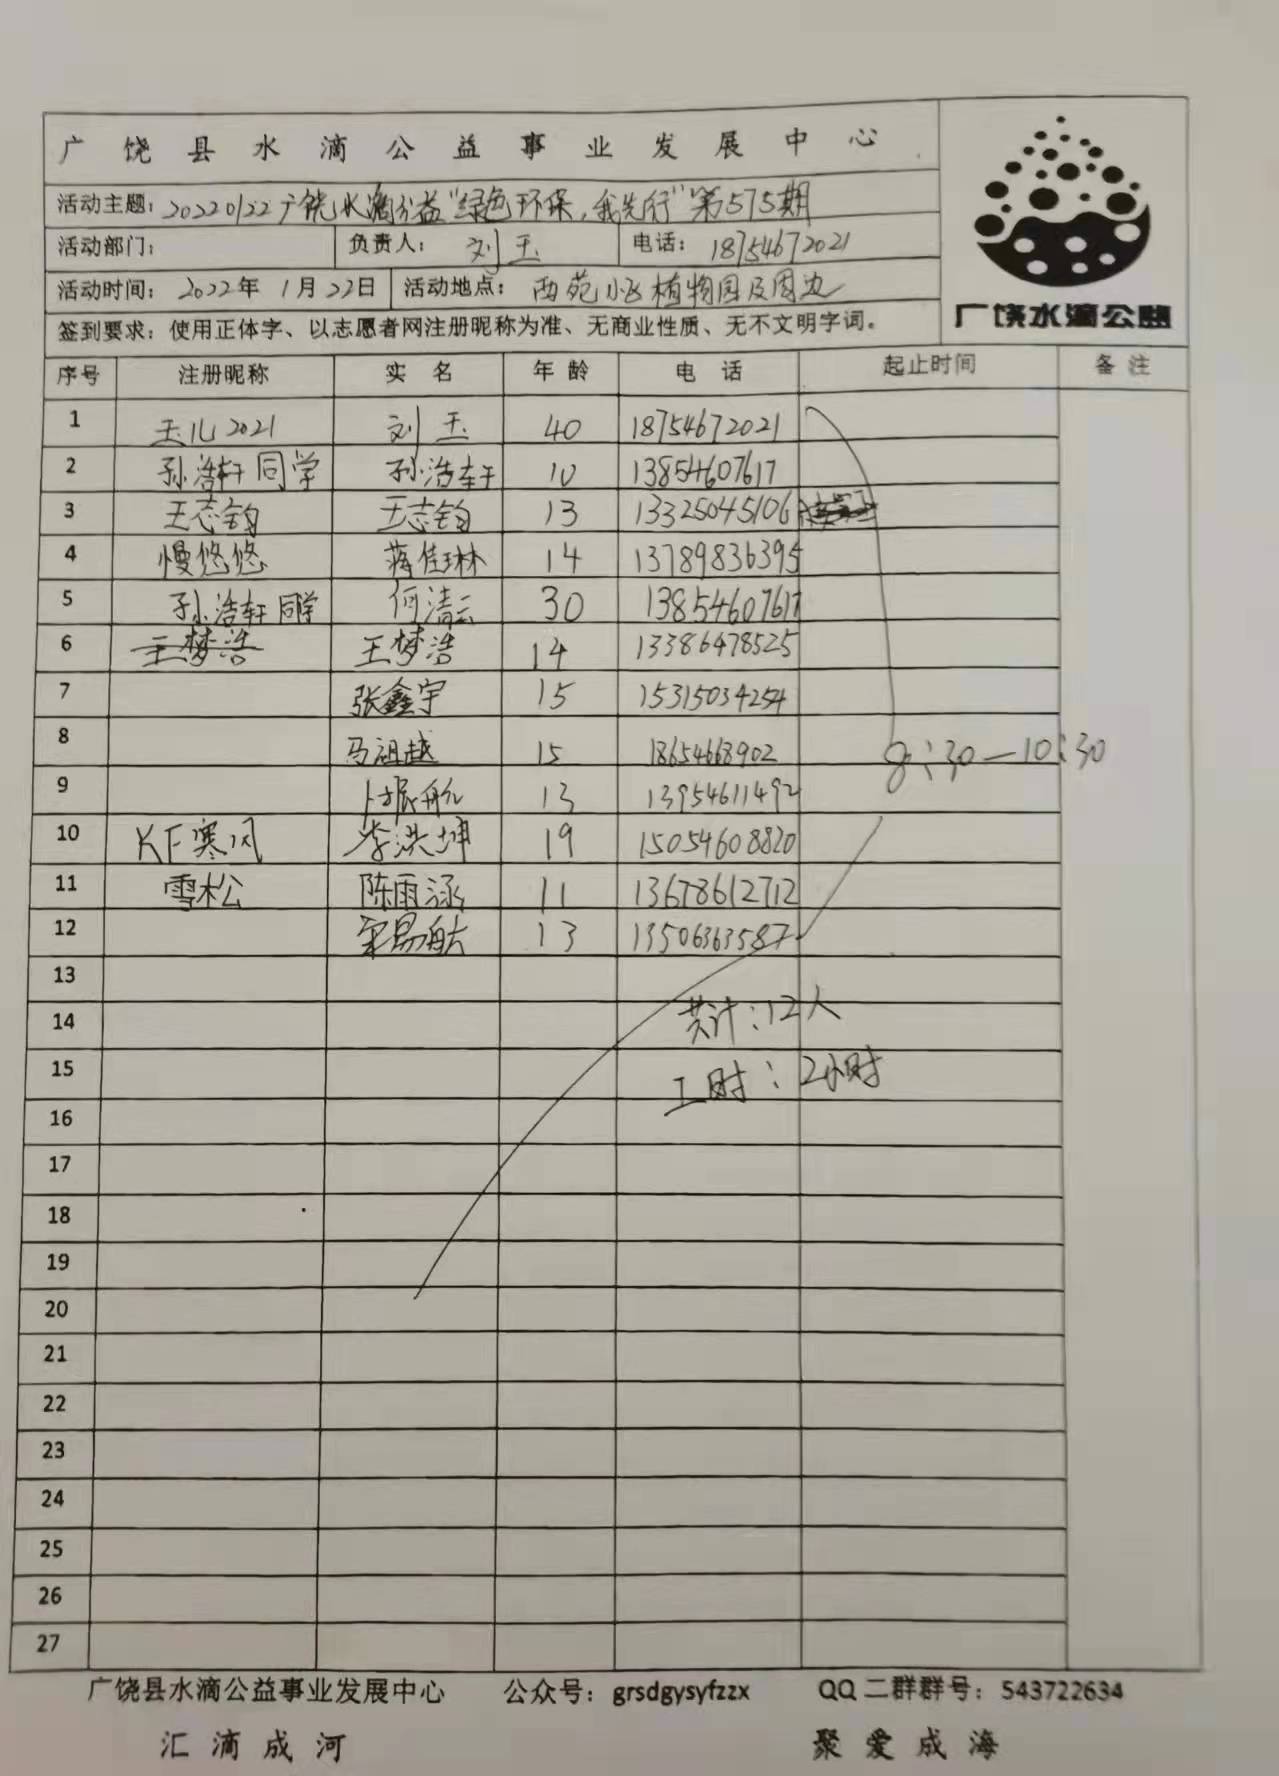 广饶县水滴公益事业发展中心
活动主题：20220122广饶水滴公益"绿色环保，我先行"第575期
活动部门： 负责人：刘玉 电话：18754672021
活动时间：2022年1月22日 活动地点：西苑小区植物园及周边
签到要求：使用正体字、以志愿者网注册昵称为准、无商业性质、无不文明字词。
广饶水滴公益
序号 注册昵称 实名 年龄 电话 起止时间 备注
1 玉儿2021 刘玉 40 18754672021
2 孙浩轩同学 孙浩轩 10 13854607617
3 王志钧 王志钧 13 13325045106
4 慢悠悠 蒋佳琳 14 13789836395
5 孙浩轩同学 何清云 30 13854607617
6 王梦浩 王梦浩 14 13386478525
7 张鑫宇 15 15315034254
8 马祖越 15 18654668902 8:30—10:30
9 卜振航 13 13954611492
10 KF寒风 李洪坤 19 15054608820
11 雪松 陈雨涵 11 13678612712
12 易航 13 13506363587
13
14 共计：12人
15 工时：2小时
16
17
18
19
20
21
22
23
24
25
26
27
广饶县水滴公益事业发展中心 公众号：grsdgysyfzzx QQ二群群号：543722634
汇滴成河 聚爱成海